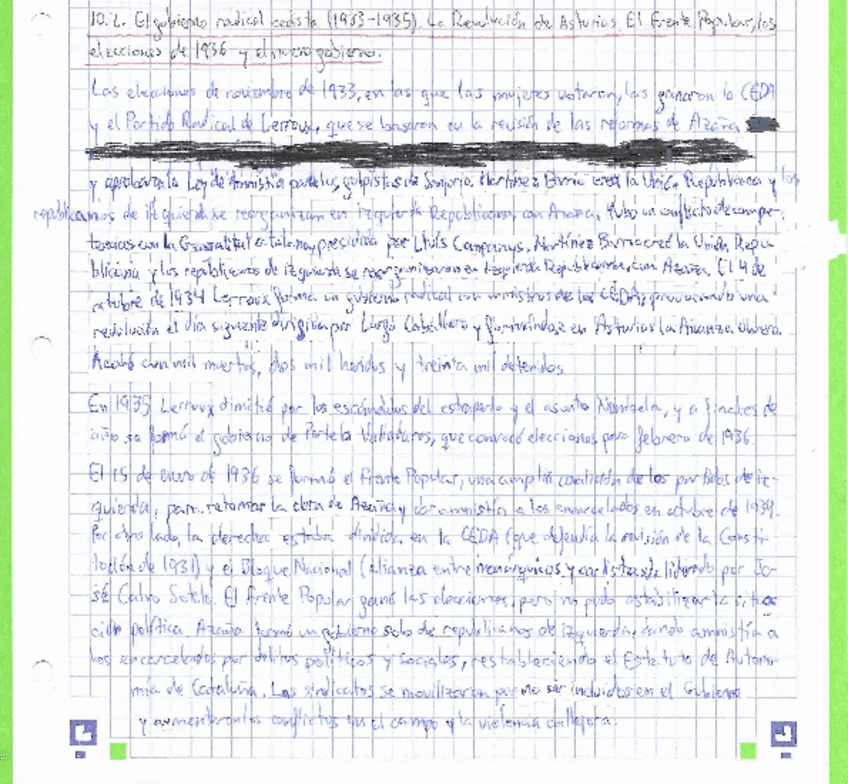 10.2. El gobierno radical cedista (1933-1935). La Revolución de Asturias. El Frente Popular, las
elecciones de 1936 y el nuevo gobierno.
Las elecciones de noviembre de 1933, en las que las mujeres votaron, las ganaron la CEDA
y el Partido Radical de Lerroux, que se basaron en la revisión de las reformas de Azaña
y aprobaron la Ley de Amnistía para los golpistas de Sanjurjo. Martínez Barrio creó la Unión Republicana y los
republicanos de izquierda se reorganizan en Izquierda Republicana, con Azaña. Hubo un conflicto de compe-
tencias con la Generalitat catalana, presidida por Lluís Companys. Martínez Barrio creó la Unión Repu-
blicana y los republicanos de izquierda se reorganizaron en Izquierda Republicana, con Azaña. El 4 de
octubre de 1934 Lerroux forma un gobierno radical con ministros de la CEDA, provocando una
revolución el día siguiente dirigida por Largo Caballero y formándose en Asturias la Alianza Obrera.
Acabó con mil muertos, dos mil heridos y treinta mil detenidos.
En 1935 Lerroux dimitió por los escándalos del estraperlo y el asunto Nombela, y a finales de
año se formó el gobierno de Portela Valladares, que convocó elecciones para febrero de 1936.
El 15 de enero de 1936 se formó el Frente Popular, una amplia coalición de los partidos de iz-
quierda, para retomar la obra de Azaña y dar amnistía a los encarcelados en octubre de 1934.
Por otro lado, la derecha estaba dividida en la CEDA (que defendía la revisión de la Consti-
tución de 1931) y el Bloque Nacional (alianza entre monárquicos y carlistas liderado por Jo-
sé Calvo Sotelo. El Frente Popular ganó las elecciones, pero no pudo estabilizar la situa
ción política. Azaña formó un gobierno solo de republicanos de izquierda, dando amnistía a
los encarcelados por delitos políticos y sociales, restableciendo el Estatuto de Autono-
mía de Cataluña. Los sindicatos se movilizaron por no ser incluidos en el Gobierno
y aumentaron los conflictos en el campo y la violencia callejera.